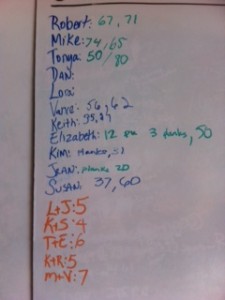 Robert: 67, 71
Mike: 74/65
Tonya: 50/80
DAN:
Lois:
56, 62
Keith:
Elizabeth: 12 3 planks, 50
Kim: 31
JEAN: planks 20
SUSAN: 37, 60
L+J: 5
K+S: 4
T+E: 6
K+R: 5
M+V: 7